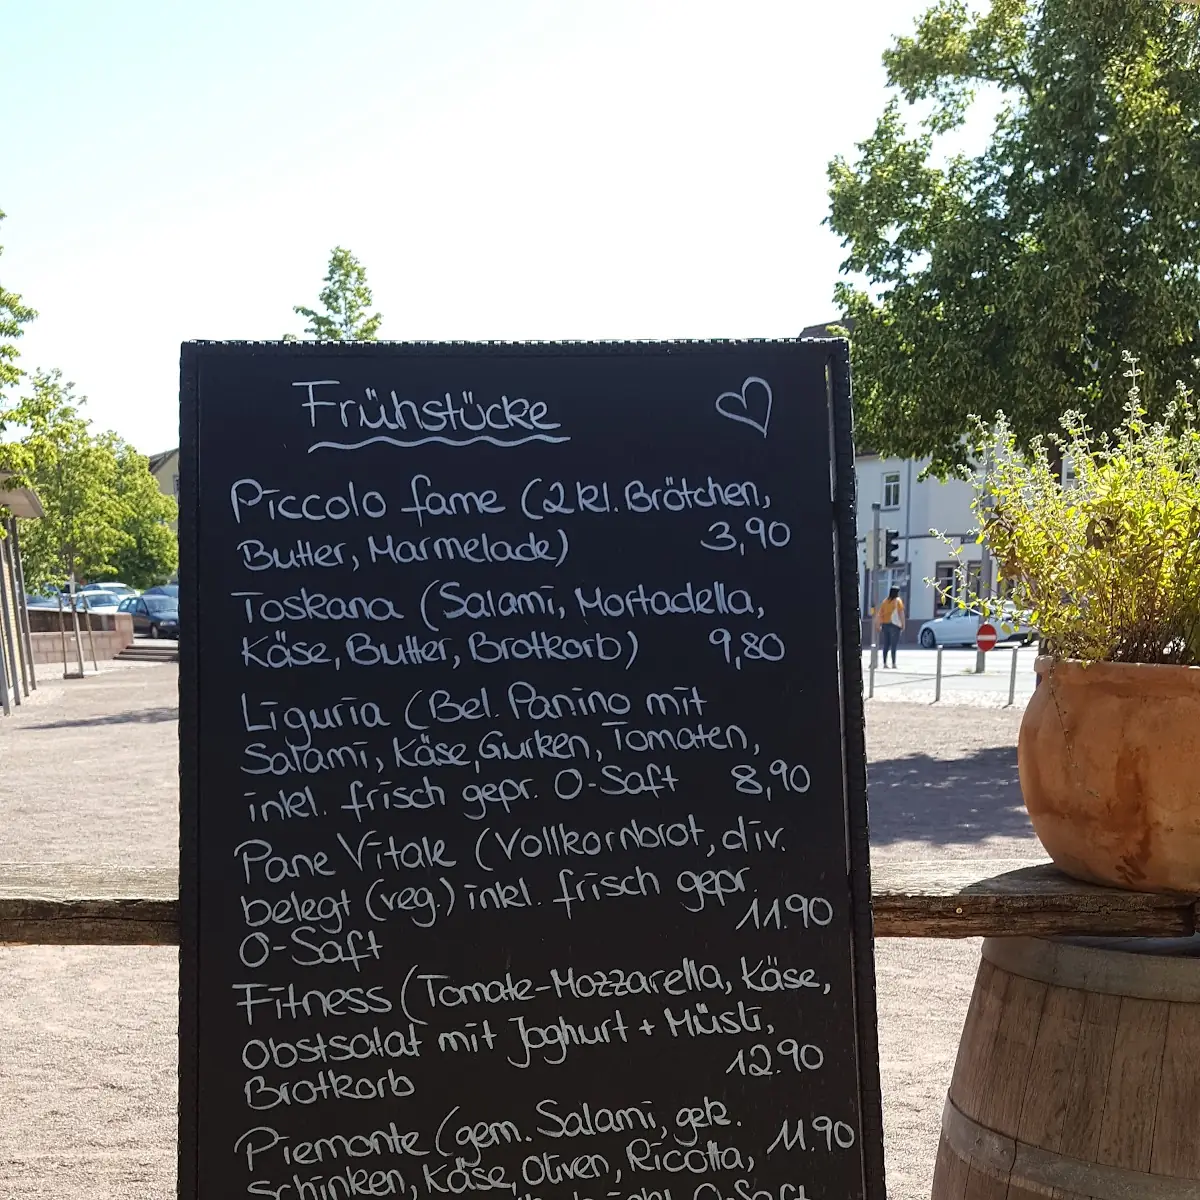 Frühstücke
Piccolo fame (2 kl. Brötchen,
Butter, Marmelade) 3,90
Toskana (Salami, Mortadella,
Käse, Butter, Brotkorb) 9,80
Liguria (Bel. Panino mit
Salami, Käse, Gurken, Tomaten,
inkl. frisch gepr. O-Saft 8,90
Pane Vitale (Vollkornbrot, div.
belegt (veg.) inkl. frisch gepr.
O-Saft 11.90
Fitness (Tomate-Mozzarella, Käse,
Obstsalat mit Joghurt + Müsli,
Brotkorb 12.90
Piemonte (gem. Salami, gek. 11.90
Schinken, Käse, Oliven, Ricotta,
O-Saft